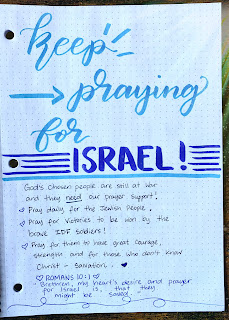 keep
praying
for
ISRAEL!
God's chosen people are still at war
and they need our prayer support!
Pray daily for the Jewish People,
Pray for victories to be won by the
brave IDF soldiers!
Pray for them to have great courage,
strength and for those who don't know
Christ - salvation.
ROMANS 10:1
- Brethren, my heart's desire and prayer
for Israel is, that they
might be saved.